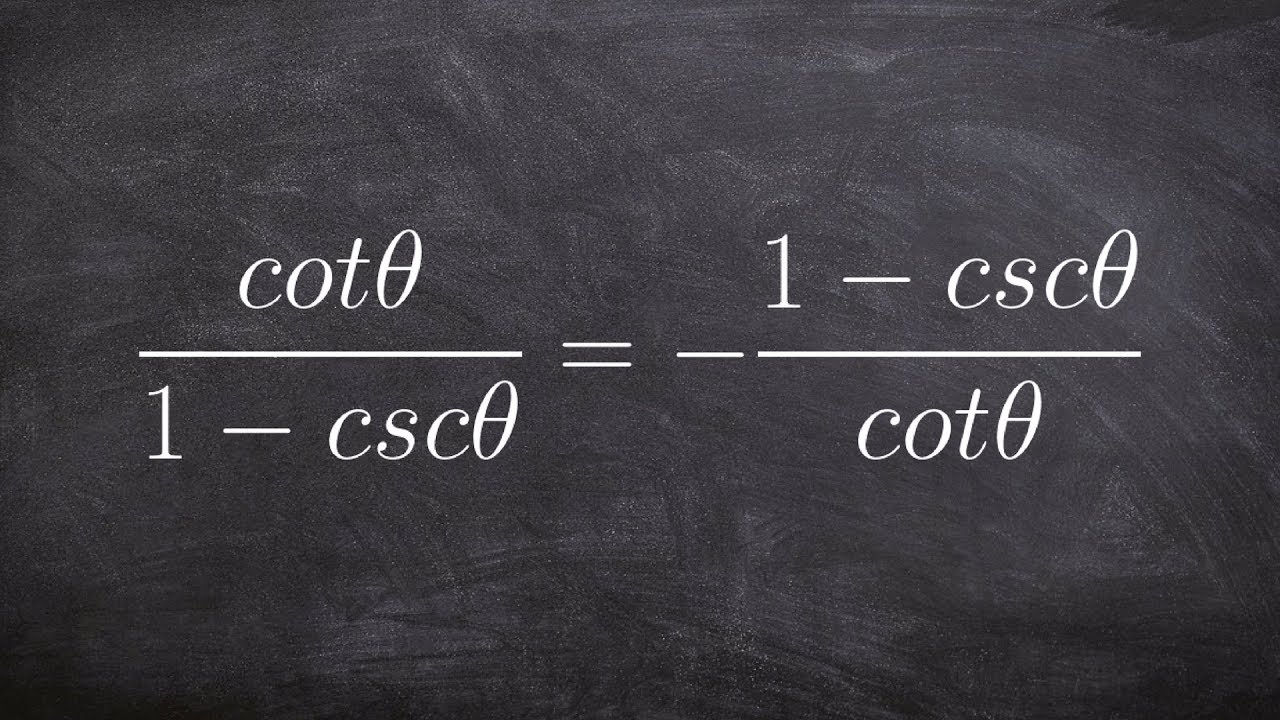 cotθ / 1 − cscθ = − 1 − cscθ / cotθ